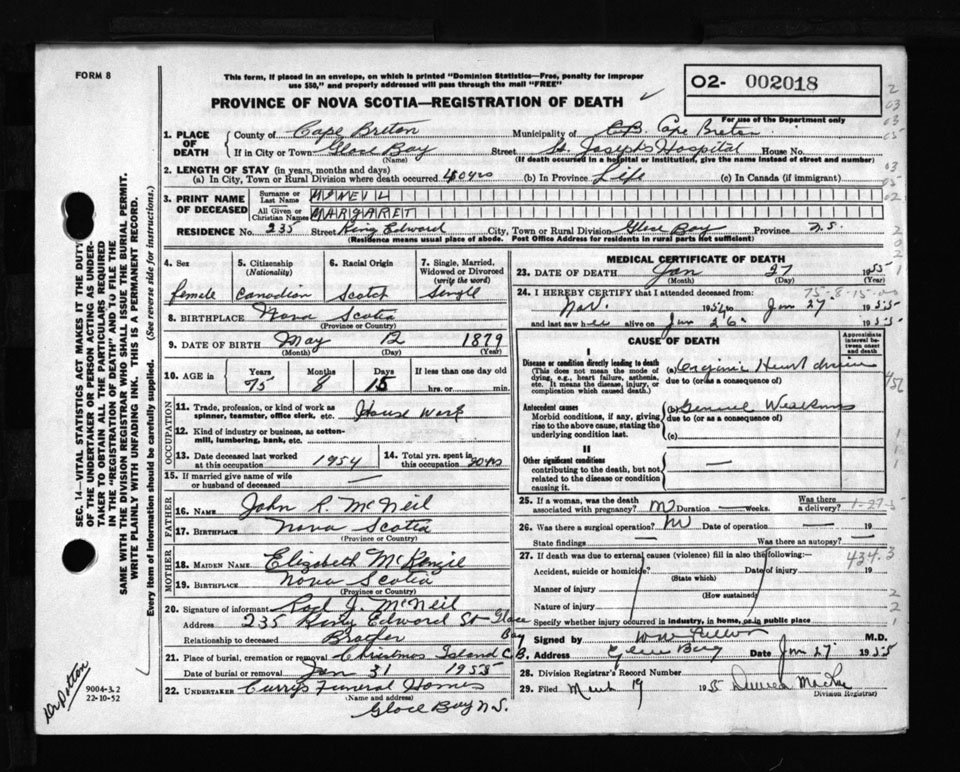 FORM 8
This form, if placed in an envelope, on which is printed "Dominion Statistics—Free, penalty for improper
use $50," and properly addressed will pass through the mail "FREE"
PROVINCE OF NOVA SCOTIA—REGISTRATION OF DEATH
O2- 002018
For use of the Department only
1. PLACE OF DEATH
County of Cape Breton Municipality of C.B. Cape Breton
If in City or Town Glace Bay Street St. Josephs Hospital House No.
(Name) (If death occurred in a hospital or institution, give the name instead of street and number)
2. LENGTH OF STAY (in years, months and days)
(a) In City, Town or Rural Division where death occurred 40 yrs (b) In Province Life (c) In Canada (if immigrant)
3. PRINT NAME OF DECEASED
Surname or Last Name MCNEIL
All Given or Christian Names MARGARET
RESIDENCE No. 235 Street King Edward City, Town or Rural Division Glace Bay Province N.S.
(Residence means usual place of abode. Post Office Address for residents in rural parts not sufficient)
4. Sex
female
5. Citizenship
(Nationality)
Canadian
6. Racial Origin
Scotch
7. Single, Married,
Widowed or Divorced
(write the word)
Single
8. BIRTHPLACE Nova Scotia
(Province or Country)
9. DATE OF BIRTH May 12 1879
(Month) (Day) (Year)
10. AGE in Years 75 Months 8 Days 15 If less than one day old
hrs. or min.
OCCUPATION
11. Trade, profession, or kind of work as
spinner, teamster, office clerk, etc. House Work
12. Kind of industry or business, as cotton-
mill, lumbering, bank, etc.
13. Date deceased last worked
at this occupation 1954
14. Total yrs. spent in
this occupation
15. If married give name of wife
or husband of deceased —
FATHER
16. NAME John R. McNeil
17. BIRTHPLACE Nova Scotia
(Province or Country)
MOTHER
18. MAIDEN NAME Elizabeth McKenzie
19. BIRTHPLACE Nova Scotia
(Province or Country)
20. Signature of informant Rod J. McNeil
Address 235 King Edward St Glace Bay
Relationship to deceased Brother
21. Place of burial, cremation or removal Christmas Island C.B.
Date of burial or removal Jan 31 1955
22. UNDERTAKER Currys Funeral Homes
(Name and address)
Glace Bay N.S.
MEDICAL CERTIFICATE OF DEATH
23. DATE OF DEATH Jan 27 1955
(Month) (Day)
24. I HEREBY CERTIFY that I attended deceased from
75-8-15
Nov. 1954 to Jan 27 1955
and last saw her alive on Jan 26 1955
CAUSE OF DEATH
Approximate interval between onset and death
I
Disease or condition directly leading to death
(This does not mean the mode of
dying, e.g., heart failure, asthenia,
etc. It means the disease, injury, or
complication which caused death.)
(a)
due to (or as a consequence of)
Antecedent causes
Morbid conditions, if any, giving
rise to the above cause, stating the
underlying condition last.
(b) General Weakness
due to (or as a consequence of)
(c)
II
Other significant conditions
contributing to the death, but not
related to the disease or condition
causing it.
—
25. If a woman, was the death
associated with pregnancy? Duration —weeks. Was there
a delivery? 1-27-5
26. Was there a surgical operation? Date of operation — 19
State findings — Was there an autopsy? —
27. If death was due to external causes (violence) fill in also the following:—
434.3
Accident, suicide or homicide? Date of injury 19
(State which)
Manner of injury
(How sustained)
Nature of injury
Specify whether injury occurred in industry, in home, or in public place
Signed by M.D.
Address Glace Bay Date Jan 27 1955
28. Division Registrar's Record Number
29. Filed March 19 1955
Division Registrar
SEC. 14—VITAL STATISTICS ACT MAKES IT THE DUTY
OF THE UNDERTAKER OR PERSON ACTING AS UNDER-
TAKER TO OBTAIN ALL THE PARTICULARS REQUIRED
IN THE "REGISTRATION OF DEATH" AND TO FILE THE
SAME WITH THE DIVISION REGISTRAR WHO SHALL ISSUE THE BURIAL PERMIT.
WRITE PLAINLY WITH UNFADING INK. THIS IS A PERMANENT RECORD.
Every item of information should be carefully supplied. (See reverse side for instructions.)
9004-3.2
22-10-52